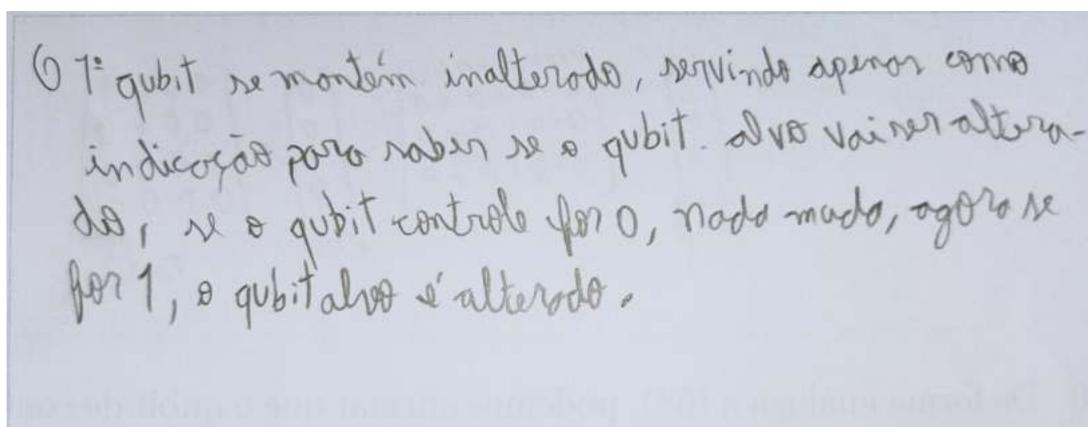 O 1º qubit se mantém inalterado, servindo apenas como
indicação para saber se o qubit alvo vai ser altera-
do, se o qubit controle for 0, nada muda, agora se
for 1, o qubit alvo é alterado.